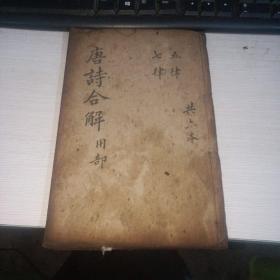 共六本
五律
七律
唐詩合解 用部